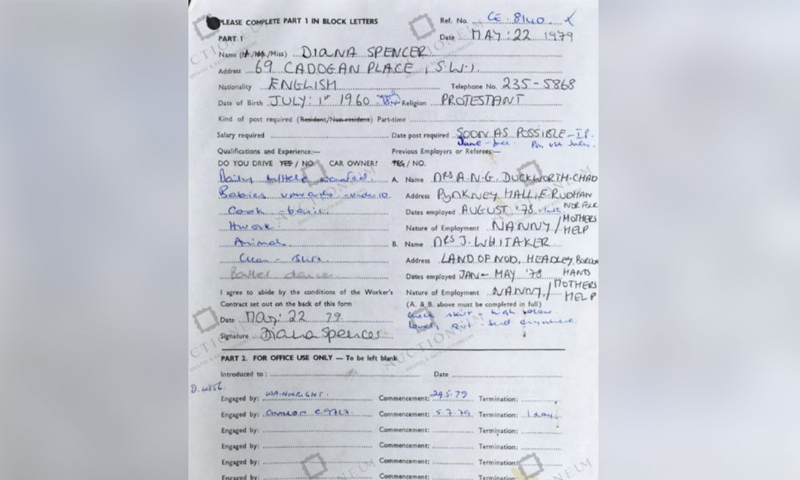 PLEASE COMPLETE PART 1 IN BLOCK LETTERS Ref. No. CE-8140
PART 1 Date MAY: 22 1979
Name (Mr/Mrs/Miss) DIANA SPENCER
Address 69 CADOGAN PLACE, S.W.1.
Nationality ENGLISH Telephone No. 235-5868
Date of Birth JULY: 1st 1960 Religion PROTESTANT
Kind of post required (Resident/Non-resident) Part-time
Salary required Date post required SOON AS POSSIBLE
Qualifications and Experience:— Previous Employers or Referees:—
DO YOU DRIVE YES/NO. CAR OWNER? YES/NO.
A. Name MRS A.N.G. DUCKWORTH-CHAD
Babies upwards Address PYNKNEY HALL, E. RUDHAM
NORFOLK
Cook basic Dates employed AUGUST '78
Hwork Nature of Employment NANNY/MOTHERS HELP
Animals B. Name MRS J. WHITAKER
Address LAND OF NOD, HEADLEY, BORDON
HANTS
Ballet dancer Dates employed JAN - MAY '78
I agree to abide by the conditions of the Worker's Nature of Employment NANNY/MOTHERS HELP
Contract set out on the back of this form (A. & B. above must be completed in full)
Date May: 22 79
Signature Diana Spencer
PART 2. FOR OFFICE USE ONLY — To be left blank
Introduced to: Date
Engaged by: WAINWRIGHT Commencement: 29.5.79 Termination:
Engaged by: Commencement: 5.7.79 Termination: 1 day
Engaged by: Commencement: Termination:
Engaged by: Commencement: Termination:
Engaged by: Commencement: Termination:
Engaged by: Commencement: Termination:
AUCTIONEUM